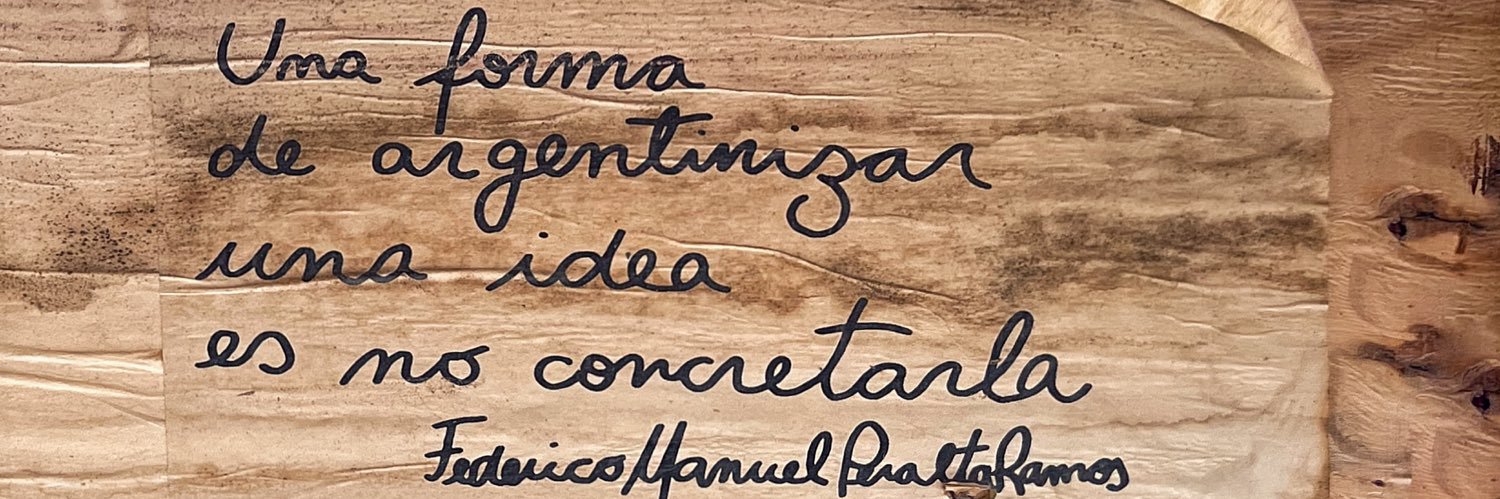 Una forma
de argentinizar
una idea
es no concretarla
Federico Manuel Peralta Ramos